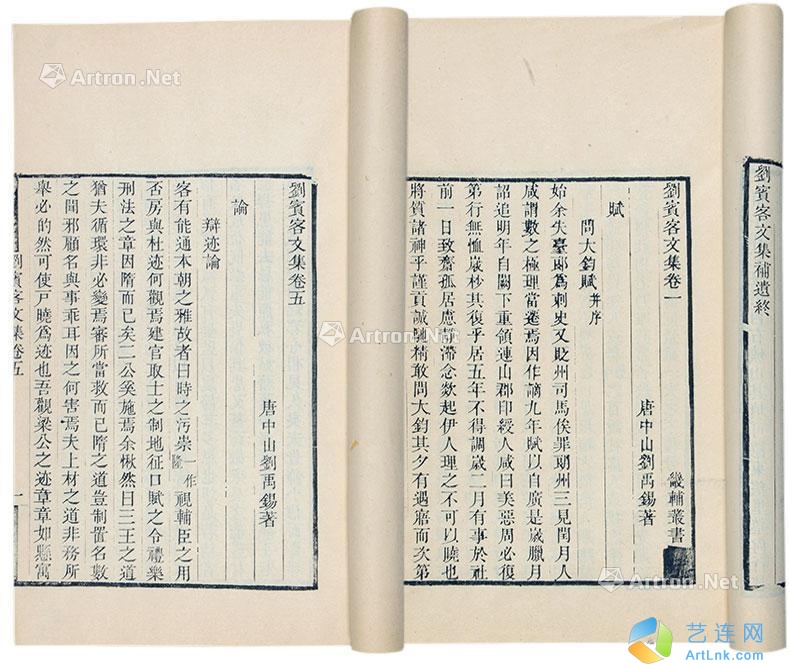 劉賓客文集補遺終
劉賓客文集卷一
畿輔叢書
唐中山劉禹錫著
賦
問大鈞賦 并序
始余失臺郎爲刺史又貶州司馬俟罪朗州三見閏月人
咸謂數之極理當遷焉因作謫九年賦以自廣是歲臘月
詔追明年自闕下重領連山郡印綬人咸曰美惡周必復
第行無恤歲杪其復乎居五年不得調歲二月有事於社
前一日致齋孤居慮靜滯念欻起伊人理之不可以曉也
將質諸神乎謹貢誠馳精敢問大鈞其夕有遇寤而次第
劉賓客文集卷五
唐中山劉禹錫著
論
辯迹論
客有能通本朝之雅故者曰時之污崇一作隆視輔臣之用
否房與杜迹何觀焉建官取士之制地征口賦之令禮樂
刑法之章因隋而已矣二公奚施焉余愀然曰三王之道
猶夫循環非必變焉審所當救而已隋之道豈制置名數
之間邪顧名與事乖耳因之何害焉夫上材之道非務所
舉必的然可使戶曉爲迹也吾觀梁公之迹章章如縣寓
劉賓客文集卷五 一
Artron.Net
Artron.Net
Artron.Net
Artron.Net
艺连网
ArtLnk.com